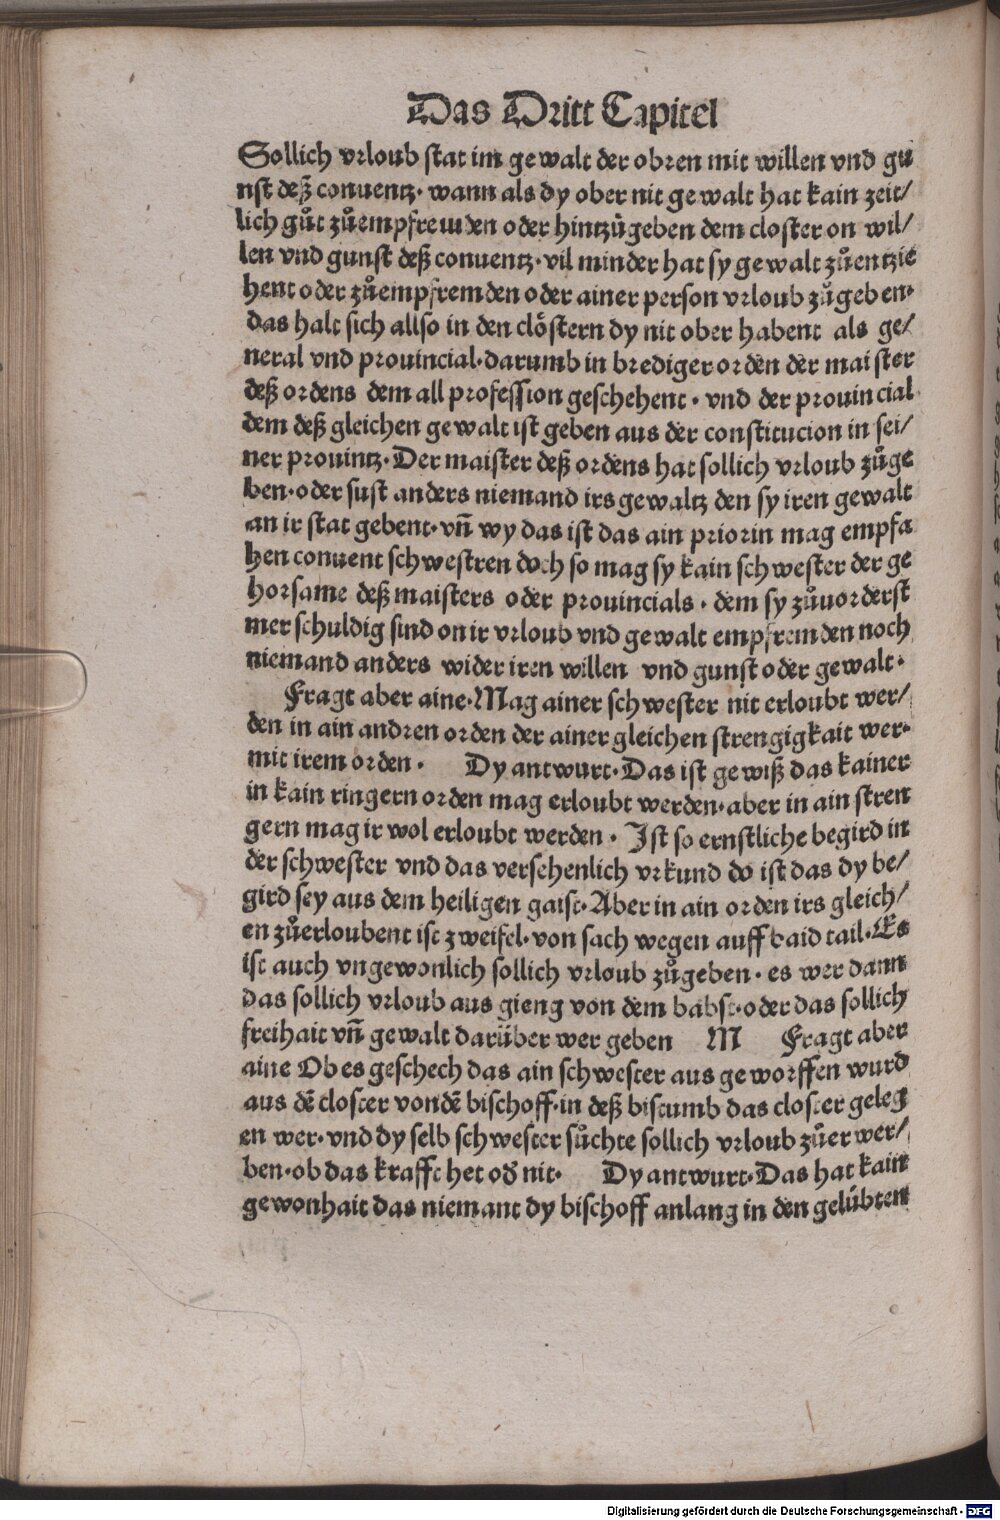 Das Dritt Capitel
Sollich vrloub stat im gewalt der obren mit willen vnd gu
nst deß conuentz· wann als dy ober nit gewalt hat kain zeit/
lich gůt zůempfremden oder hintzůgeben dem closter on wil/
len vnd gunst deß conuentz·vil minder hat sy gewalt zůentzie
hent oder zůempfremden oder ainer person vrloub zůgeben·
das halt sich allso in den clöstern dy nit ober habent als ge/
neral vnd prouincial·darumb in brediger orden der maister
deß ordens dem all profession geschehent· vnd der prouincial
dem deß gleichen gewalt ist geben aus der constitucion in sei/
ner prouintz·Der maister deß ordens hat sollich vrloub zůge
ben·oder sust anders niemand irs gewaltz den sy iren gewalt
an ir stat gebent·vñ wy das ist das ain priorin mag empfa
hen conuent schwestren doch so mag sy kain schwester der ge
horsame deß maisters oder prouincials· dem sy zůuorderst
mer schuldig sind on ir vrloub vnd gewalt empfremden noch
niemand anders wider iren willen vnd gunst oder gewalt·
Fragt aber aine·Mag ainer schwester nit erloubt wer/
den in ain andren orden der ainer gleichen strengigkait wer·
mit irem orden· Dy antwurt·Das ist gewiß das kainer
in kain ringern orden mag erloubt werden·aber in ain stren
gern mag ir wol erloubt werden· Ist so ernstliche begird in
der schwester vnd das versehenlich vrkund do ist das dy be/
gird sey aus dem heiligen gaist·Aber in ain orden irs gleich/
en zůerloubent ist zweifel·von sach wegen auff baid tail·Es
ist auch vngewonlich sollich vrloub zůgeben· es wer dann
das sollich vrloub aus gieng von dem babst·oder das sollich
freihait vñ gewalt darüber wer geben M Fragt aber
aine Ob es geschech das ain schwester aus geworffen wurd
aus dẽ closter von dẽ bischoff·in deß bistumb das closter geleg
en wer·vnd dy selb schwester sůchte sollich vrloub zůerwer/
ben·ob das krafft het oď nit· Dy antwurt·Das hat kain
gewonhait das niemant dy bischoff anlang in den gelübten
Digitalisierung gefördert durch die Deutsche Forschungsgemeinschaft - DFG